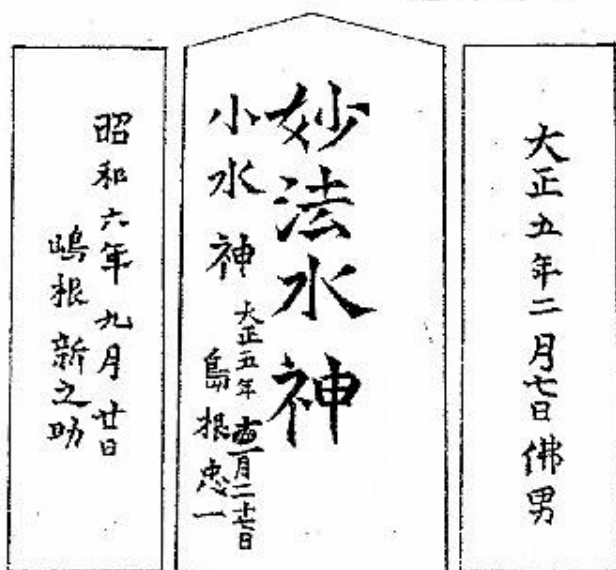 大正五年二月七日佛男
妙法水神
小水神
大正五年 月二十七日
島根忠一
昭和六年九月廿日
嶋根新之助